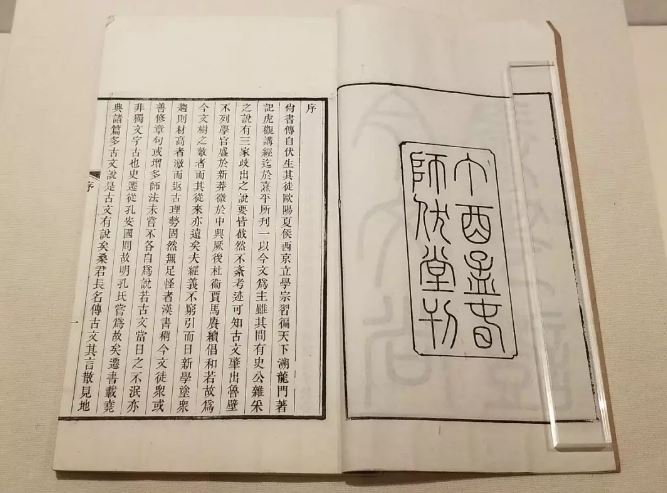 丁酉孟春
師伏堂刊
序
尙書傳自伏生其徒歐陽夏侯西京立學宗習徧天下溯龍門著
記虎觀講經迄於熹平所刊一以今文爲主雖其間有史公雜采
之說有三家歧出之說要皆截然不紊考述可知古文肇出魯壁
不列學官盛於新莽微於中興厥後杜衞賈馬賡續倡和若故爲
今文樹之敵者而其從來亦遠矣夫經義不窮引而日新學塗衆
趨則材高者澈而返古理勢固然無足怪者漢書稱今文徒衆或
善修章句或增多師法未嘗不各自爲說若古文當日之不泯亦
非獨文字古也史遷從孔安國問故明孔氏嘗爲故矣遷書載堯
典諸篇多古文說是古文有說矣桑君長名傳古文其言散見地
序
一